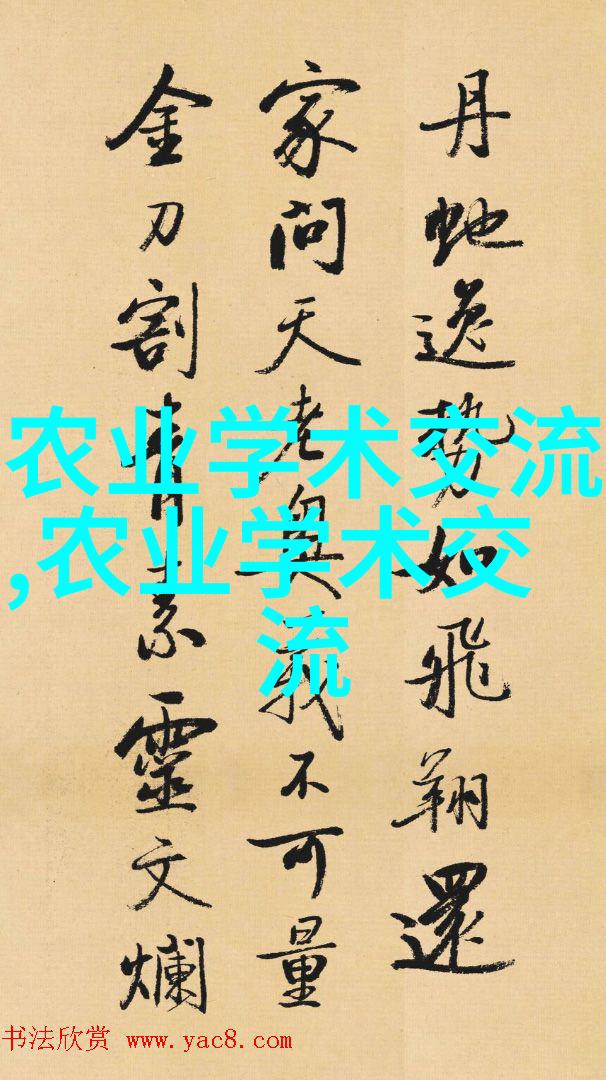 丹虵逸势如飛翔還
家問天老奥義不可量
金刀割青素靈文爛
农业学术交流
,农业学术交
流
书法欣赏 www.yac8.com